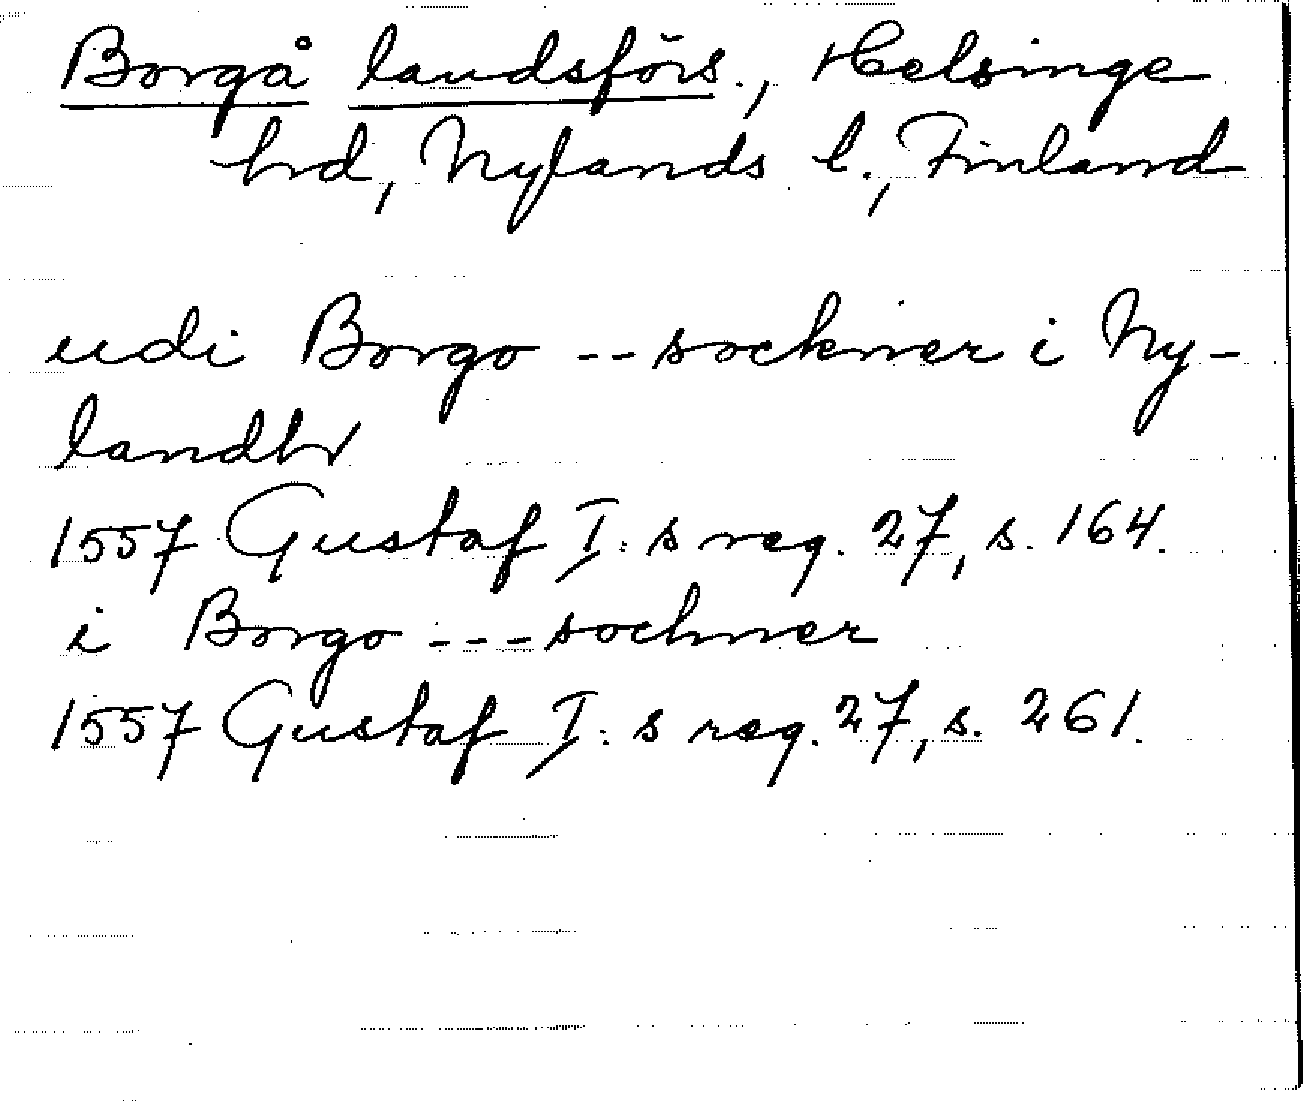 Borgå landsförs., Helsinge
hd, Nylands l., Finland
udi Borgo -- sockner i Ny-
landh
1557 Gustaf I:s reg. 27, s. 164.
i Borgo --- sochner
1557 Gustaf I:s reg. 27, s. 261.